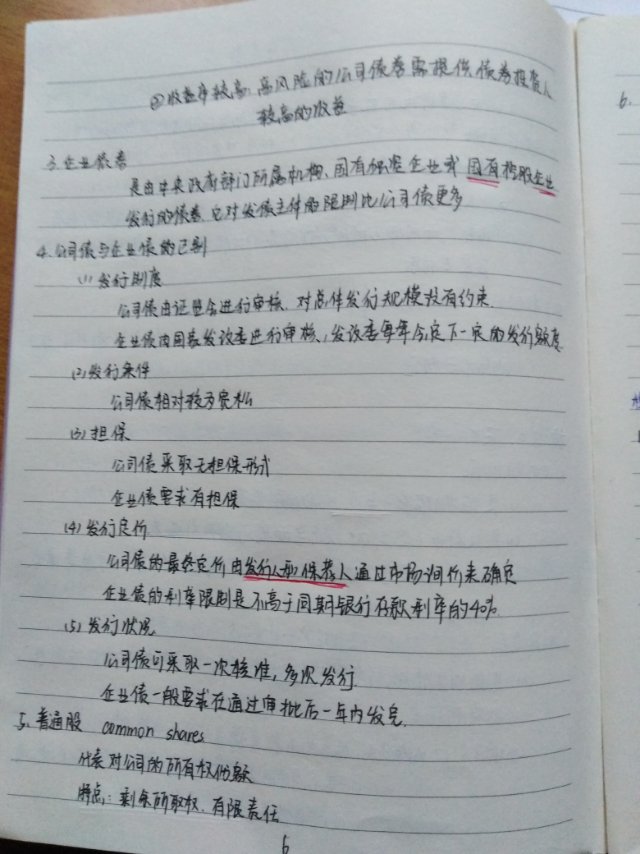 ②收益率较高,高风险的公司债券需提供债券投资人
较高的收益
3.企业债券
是由中央政府部门所属机构、国有独资企业或国有控股企业
发行的债券,它对发债主体的限制比公司债更多
4.公司债与企业债的区别
(1)发行制度
公司债由证监会进行审核,对总体发行规模没有约束
企业债由国家发改委进行审核,发改委每年会定下一定的发行额度
(2)发行条件
公司债相对较为宽松
(3)担保
公司债采取无担保形式
企业债要求有担保
(4)发行定价
公司债的最终定价由发行人和保荐人通过市场询价来确定
企业债的利率限制是不高于同期银行存款利率的40%
(5)发行状况
公司债可采取一次核准,多次发行
企业债一般要求在通过审批后一年内发完
5.普通股 common shares
代表对公司的所有权份额
特点:剩余所取权.有限责任
6
6.